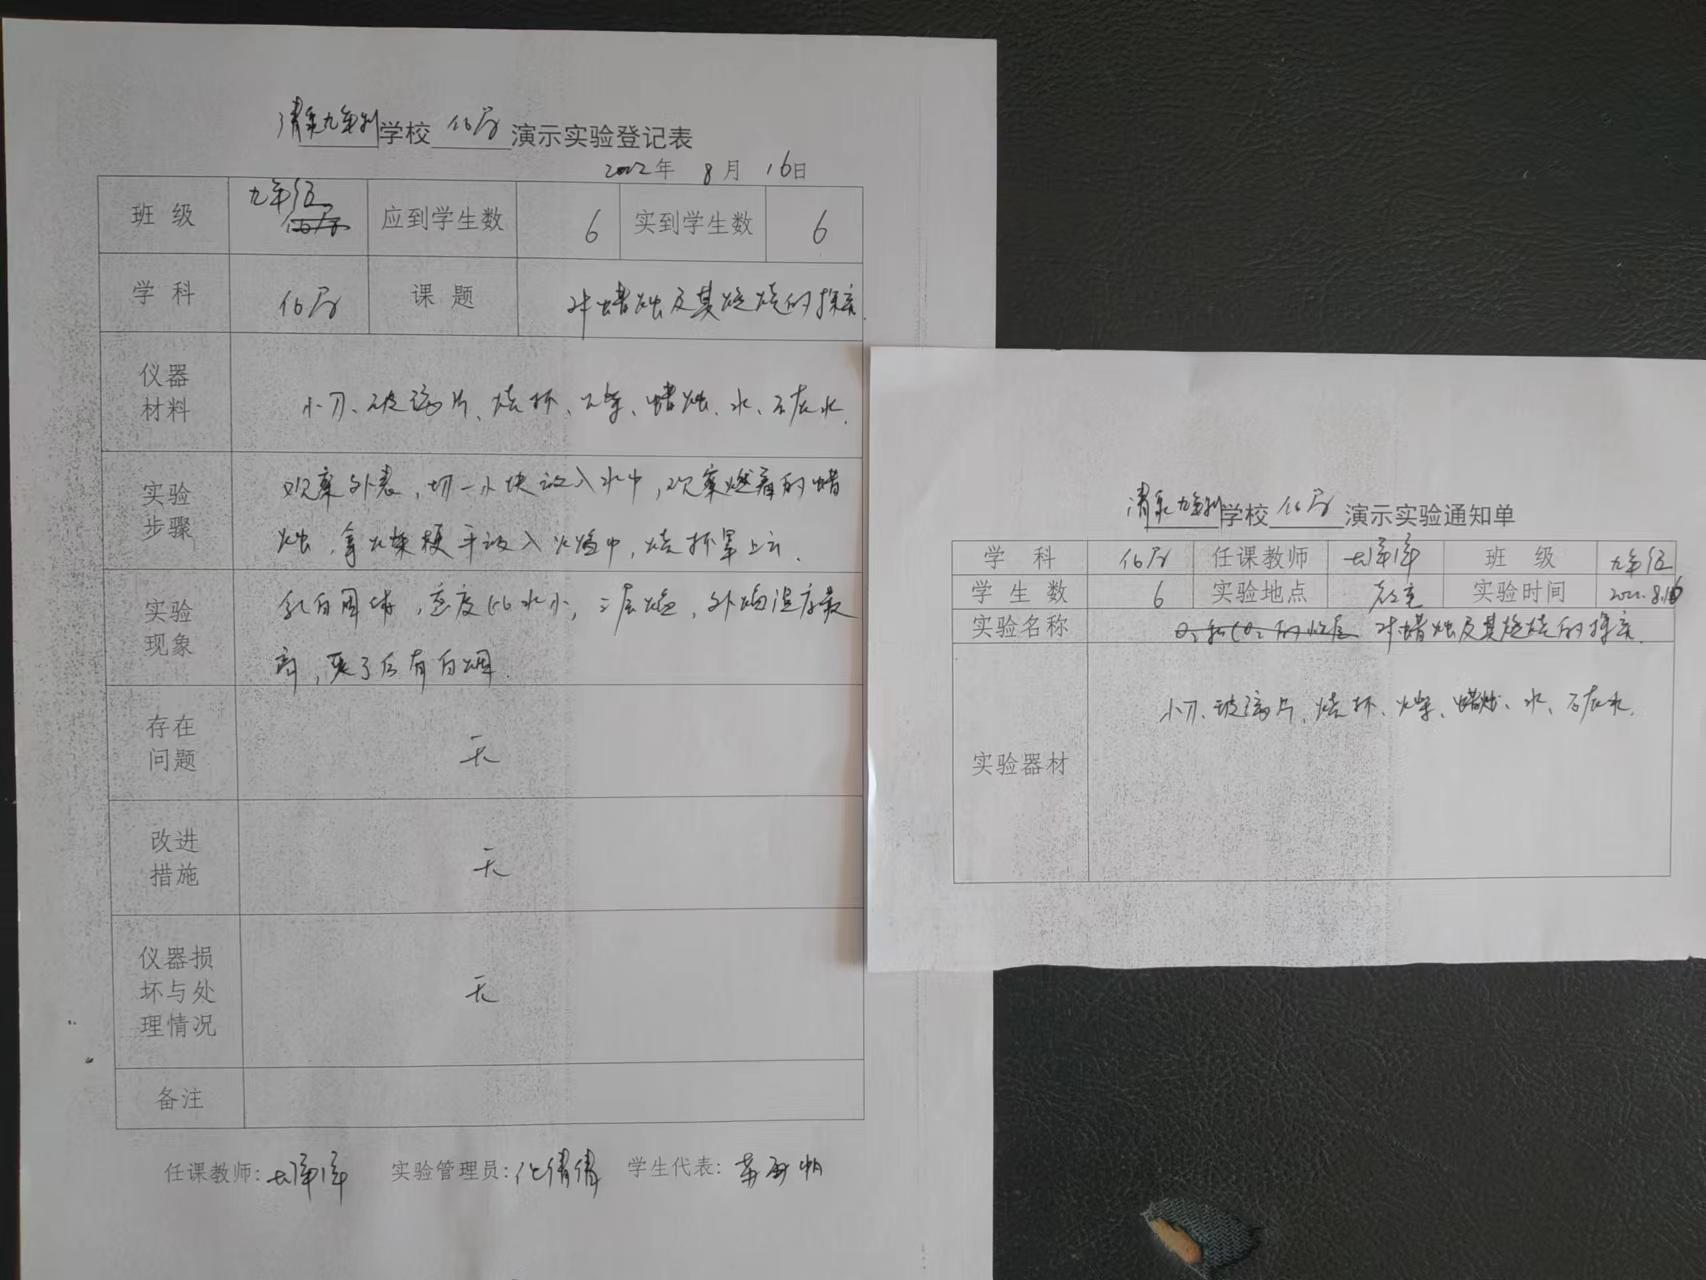 清泉九年制学校 化学 演示实验登记表
2022年 8月 16日
班级 九年级 化学 应到学生数 6 实到学生数 6
学科 化学 课题 对蜡烛及其燃烧的探究.
仪器材料 小刀、玻璃片、烧杯、火柴、蜡烛、水、石灰水.
实验步骤 观察外表,切一小块放入水中,观察燃着的蜡
烛,拿火柴梗平放入火焰中,烧杯罩上方.
实验现象 乳白固体,密度比水小,三层焰,外焰温度最
高,灭了后有白烟.
存在问题 无
改进措施 无
仪器损坏与处理情况 无
备注
任课教师: 实验管理员: 学生代表:
清泉九年制学校 化学 演示实验通知单
学科 化学 任课教师 班级 九年级
学生数 6 实验地点 实验时间 2022.8.16
实验名称 O2和CO2的性质 对蜡烛及其燃烧的探究.
实验器材 小刀、玻璃片、烧杯、火柴、蜡烛、水、石灰水.